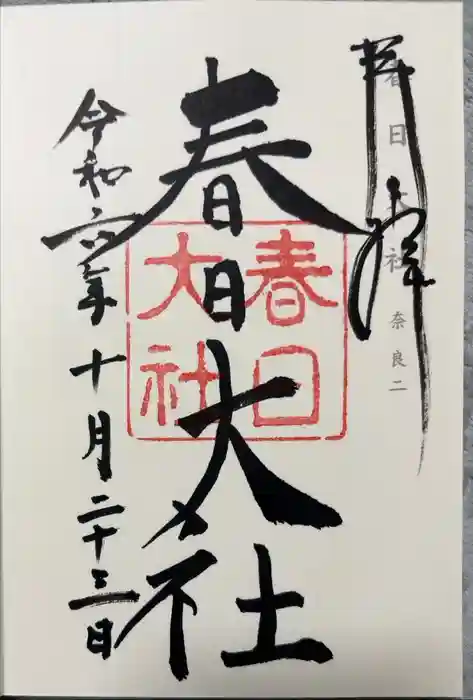 奉拝
春日大社
奈良二
春日大社
春日大社
令和六年十月二十三日